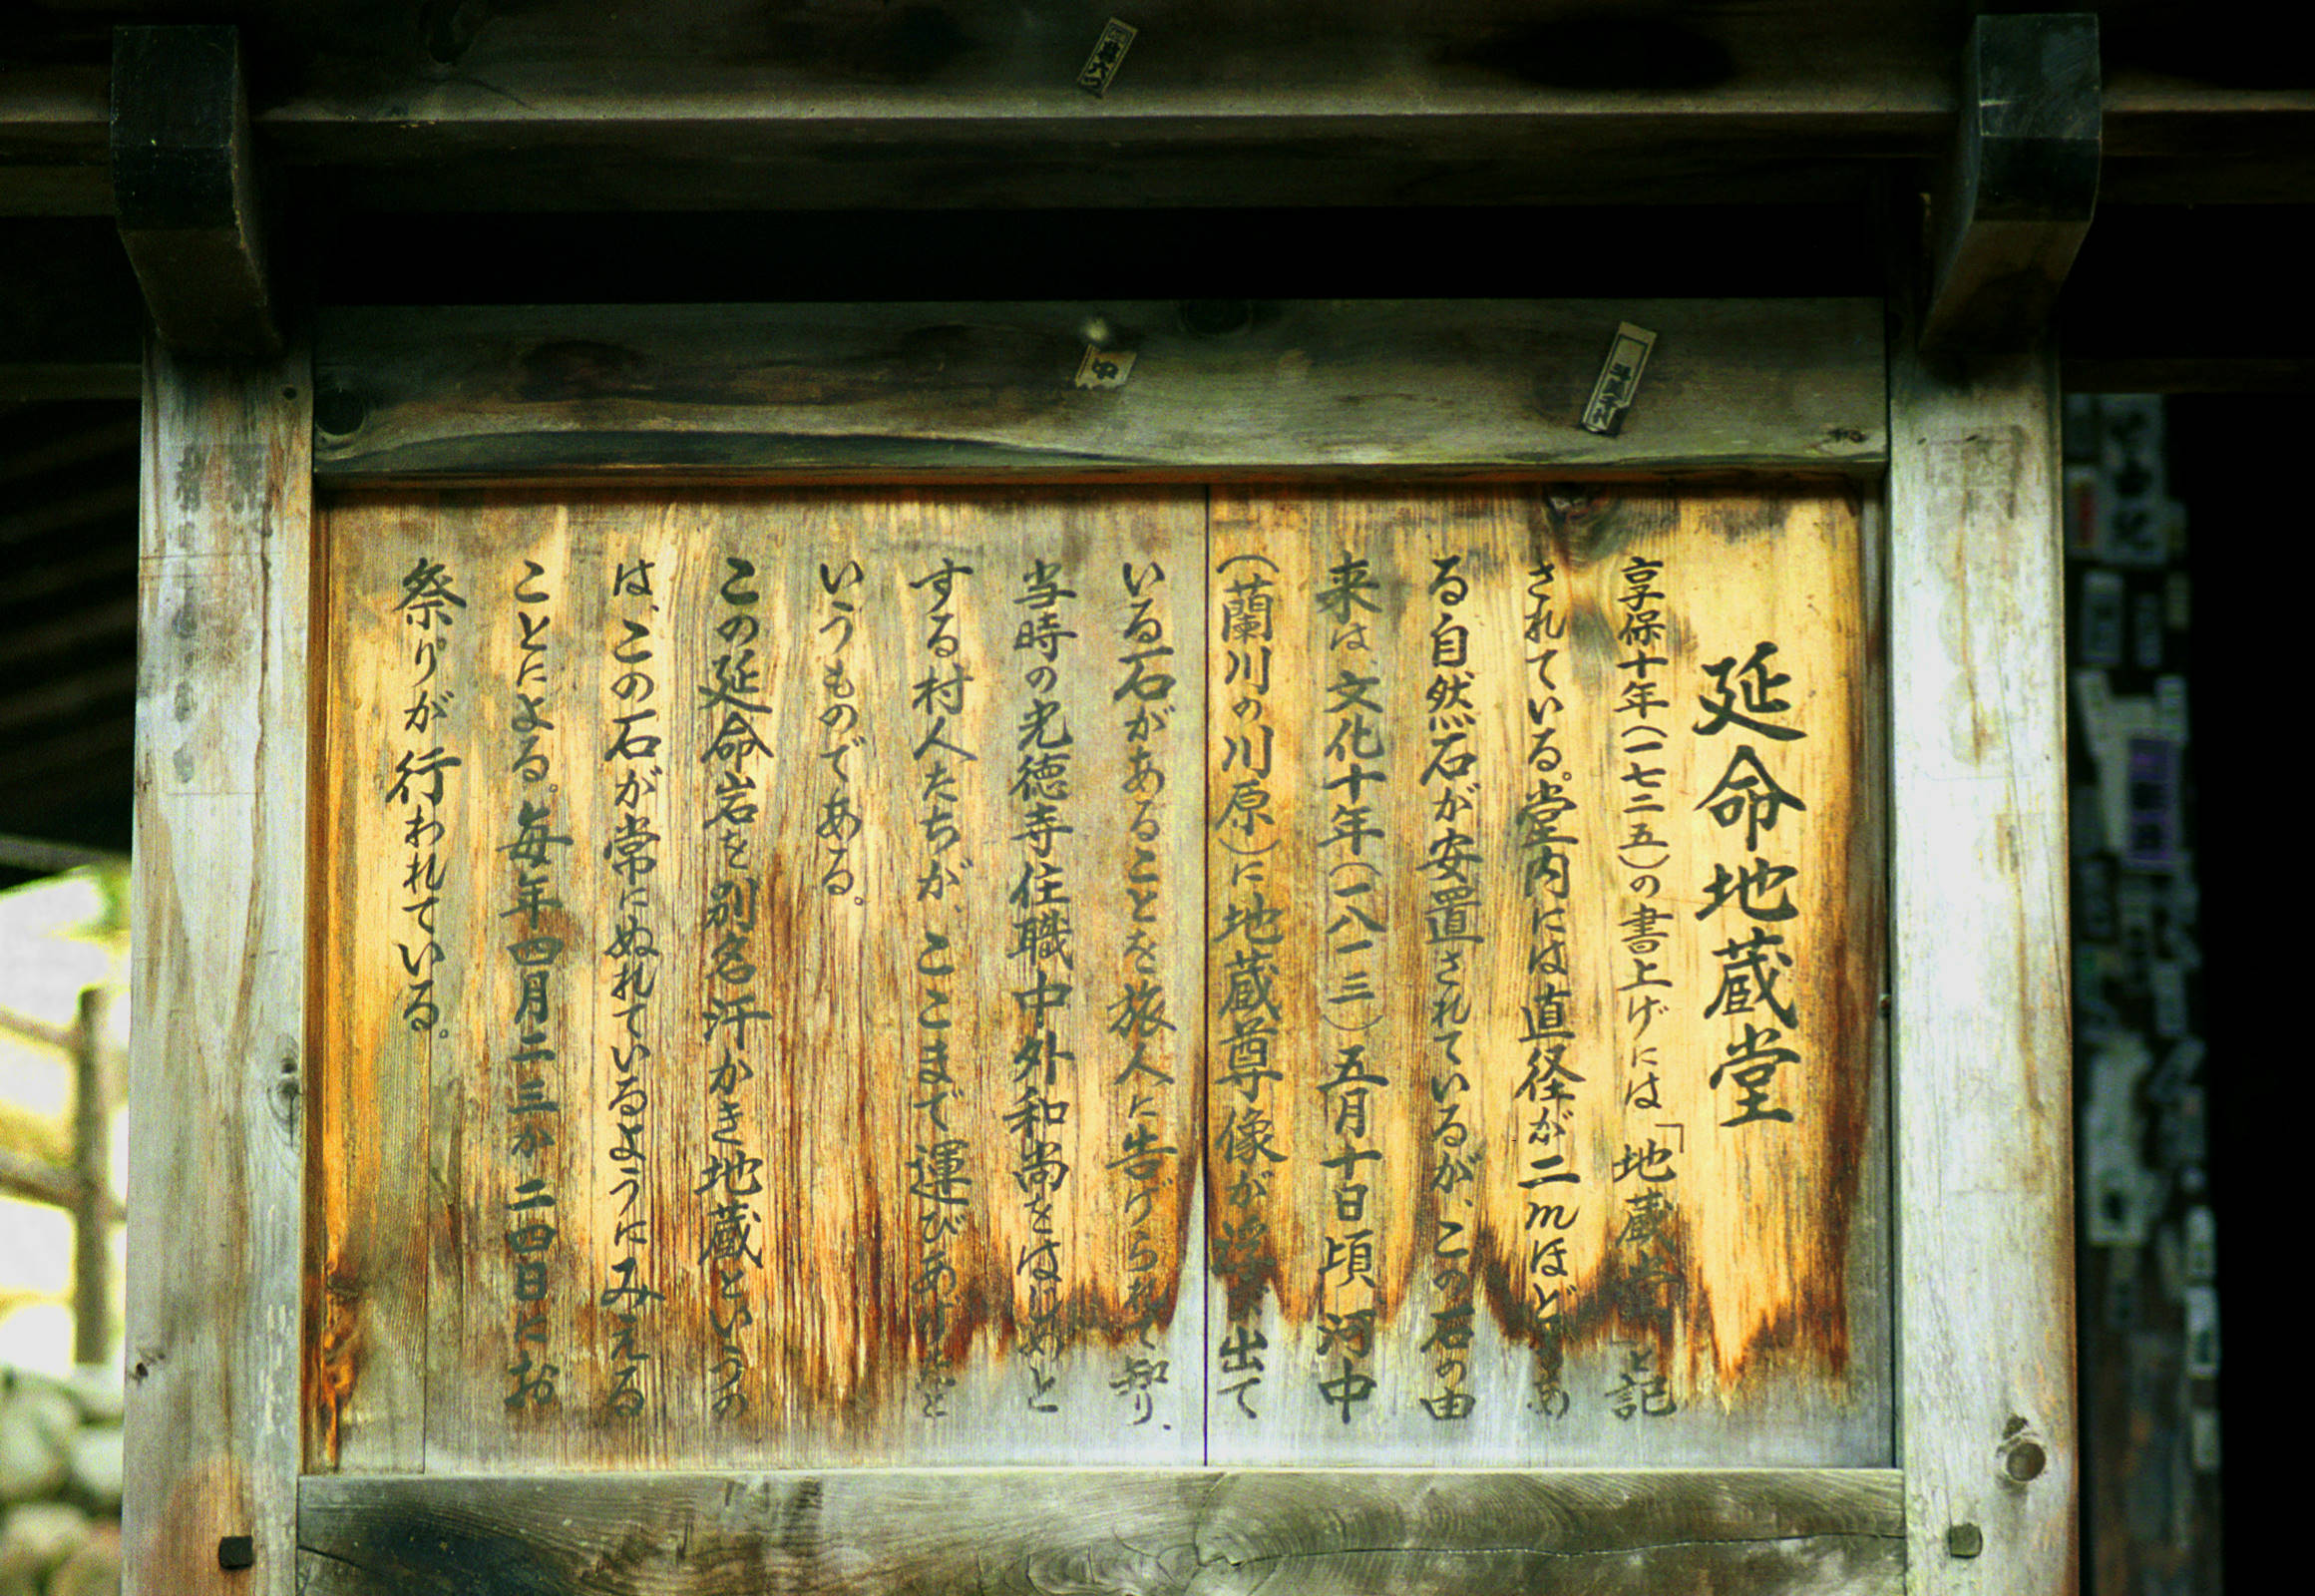 延命地蔵堂
享保十年(一七二五)の書上げには「地蔵堂」と記
されている。堂内には直径が二mほどもあ
る自然石が安置されているが、この石の由
来は、文化十年(一八一三)五月十日頃河中
(蘭川の川原)に地蔵尊像が 出て
いる石があることを旅人に告げられて知り、
当時の光徳寺住職中外和尚をはじめと
する村人たちが、ここまで運びあげたと
いうものである。
この延命岩を別名汗かき地蔵というの
は、この石が常にぬれているようにみえる
ことによる。毎年四月二三か二四日にお
祭りが行われている。